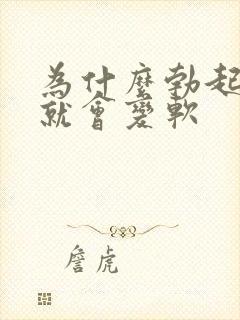 為什麼勃起
就會變軟
詹虎